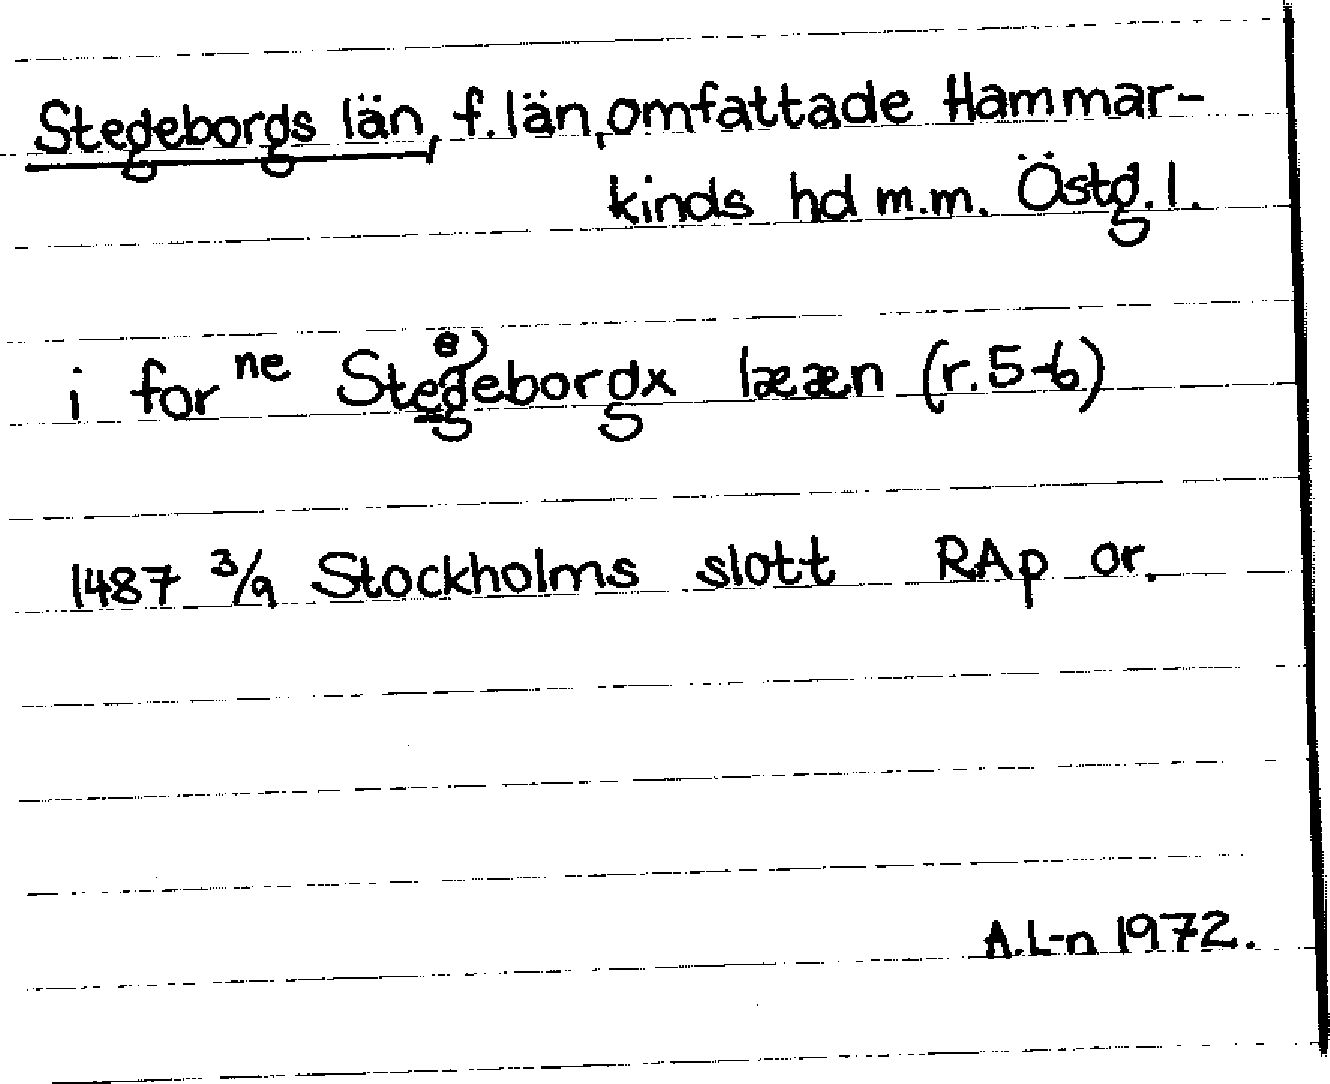 Stegeborgs län, f. län, omfattade Hammar-
kinds hd m.m. Östg. l.
i for ne Stegeborgx lææn (r. 5-6)
e)
1487 3/9 Stockholms slott RAp or.
A.L-n 1972.